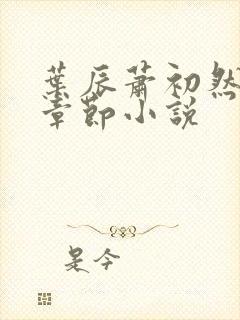 葉辰蕭初然
章節小說
是今